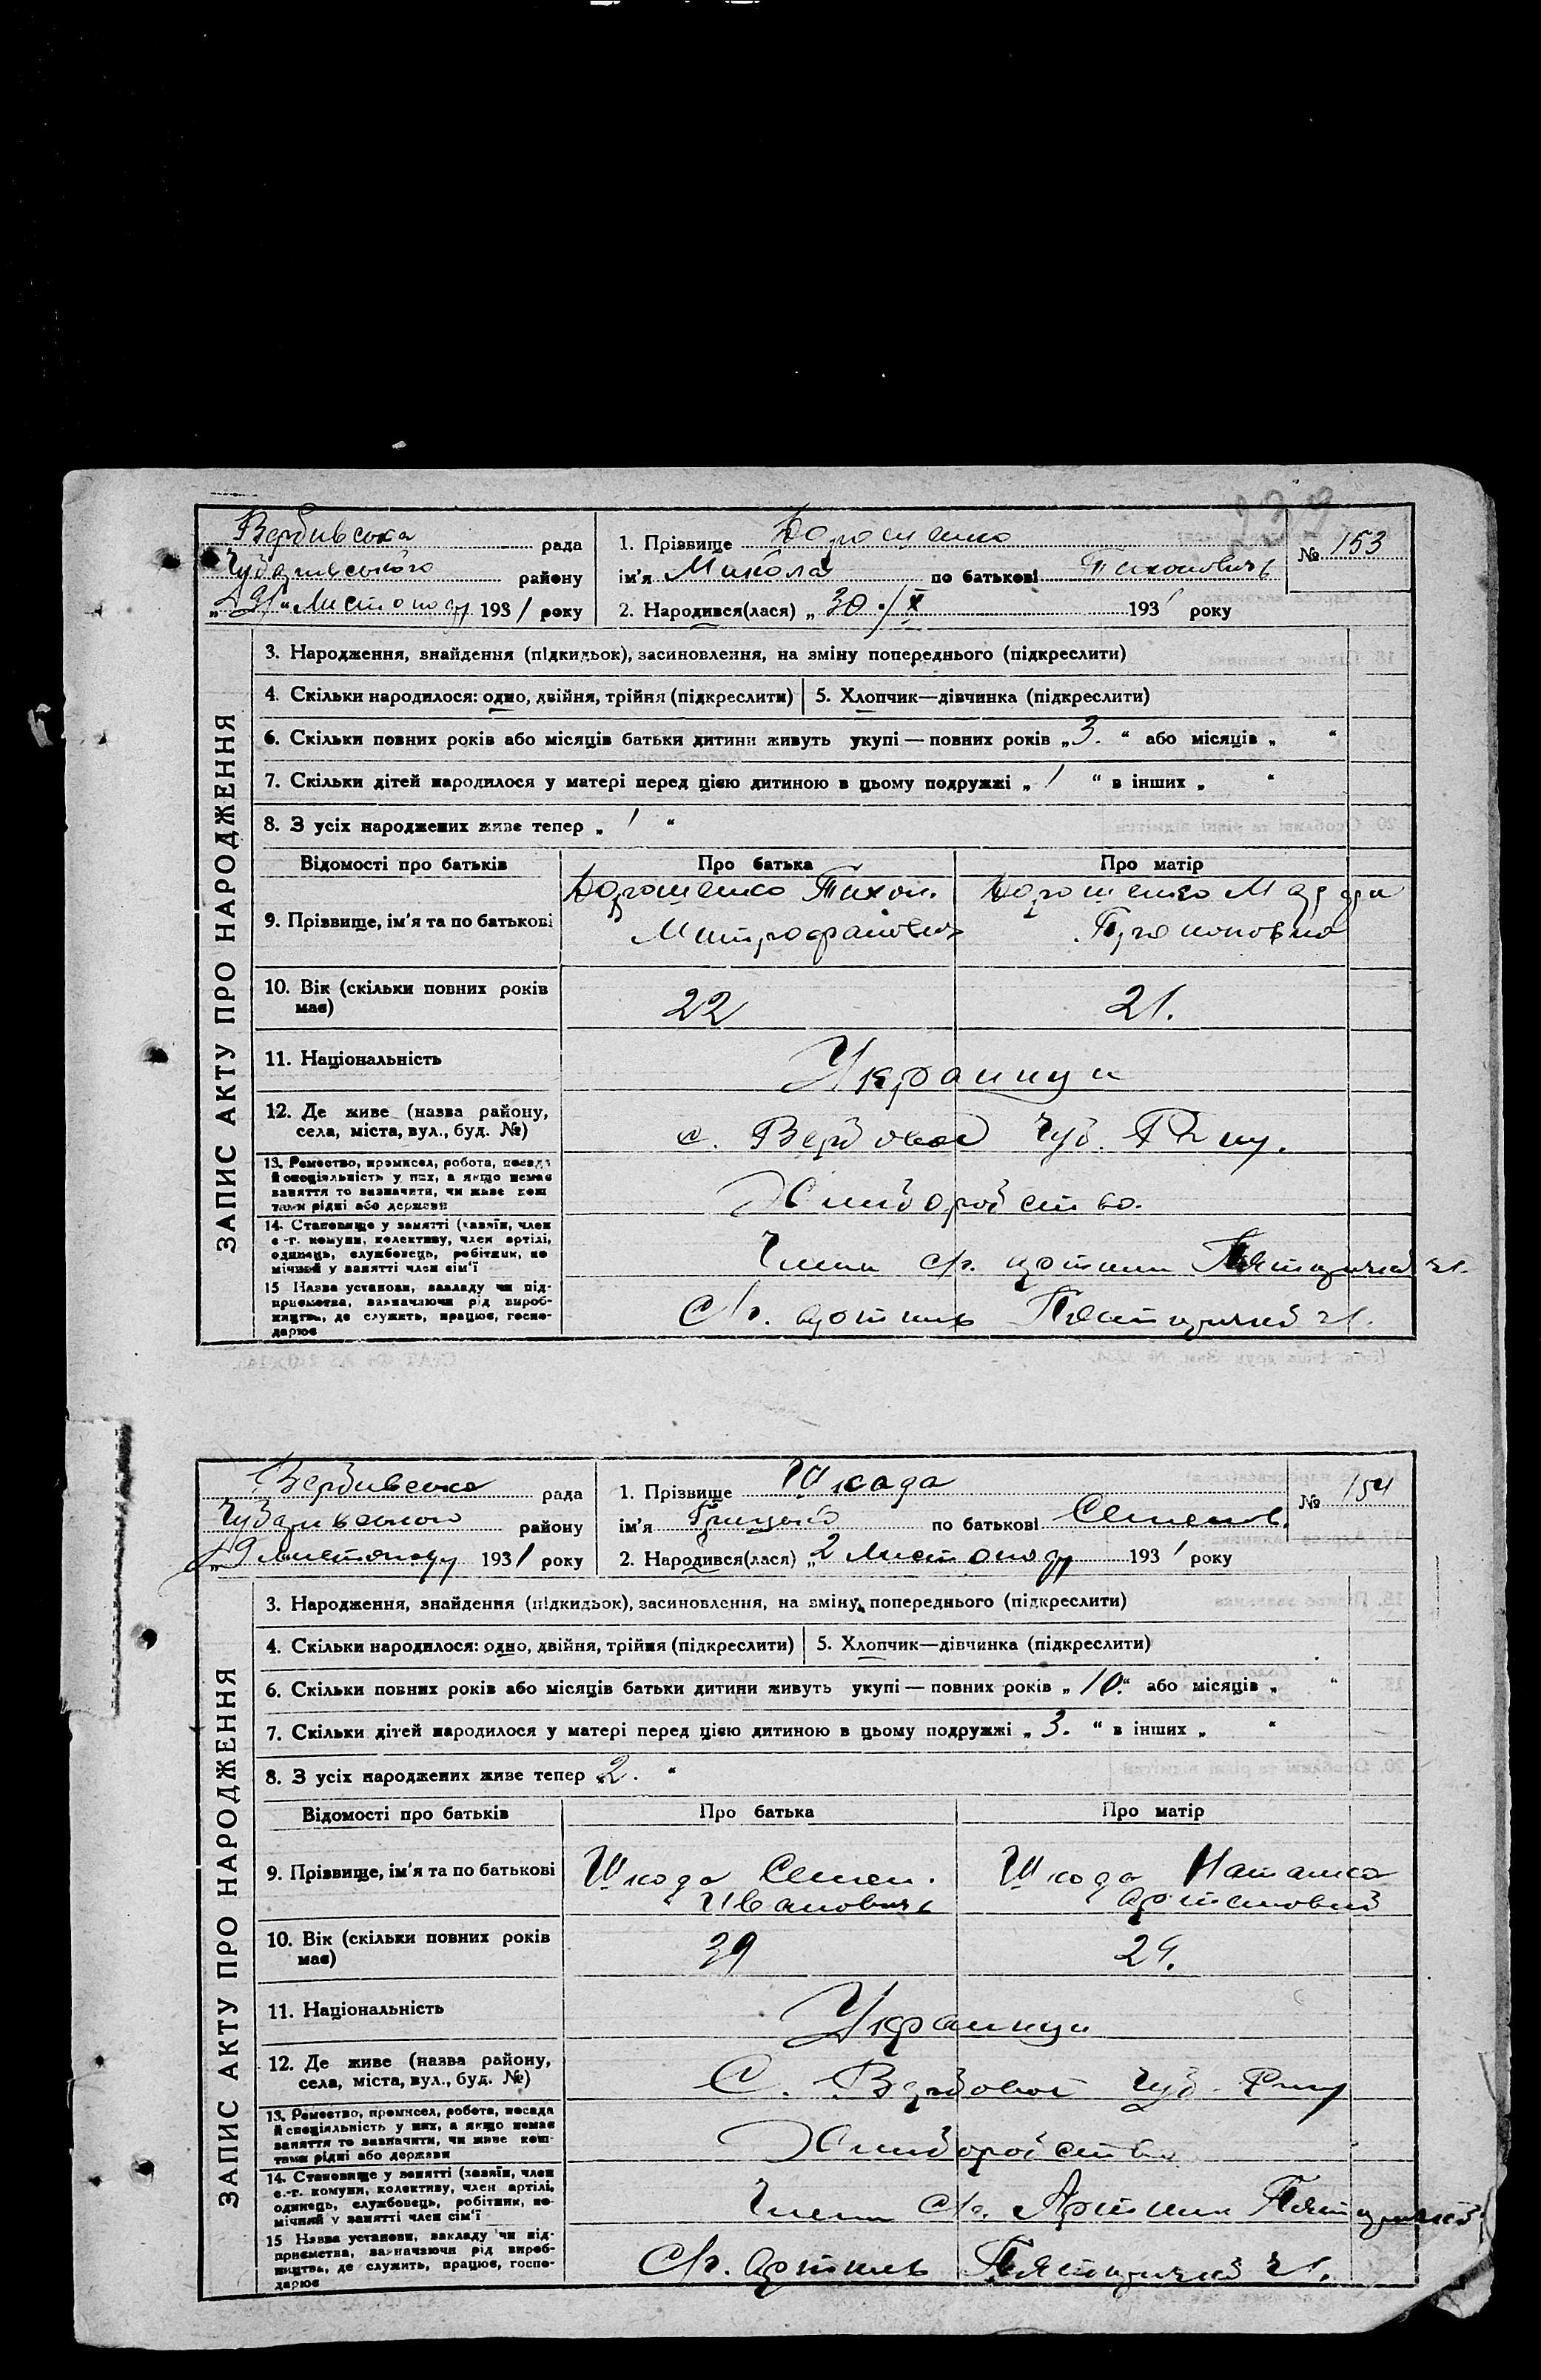 239
Вербивська рада
Чубарівського району
„ “ Листопаду 1931 року
1. Прізвище Дорошенко
ім'я Микола по батькові Тихонович
№ 153
2. Народився(лася) „ 30 “/X 1931 року
ЗАПИС АКТУ ПРО НАРОДЖЕННЯ
3. Народження, знайдення (підкидьок), засиновлення, на зміну попереднього (підкреслити)
4. Скільки народилося: одно, двійня, трійня (підкреслити) 5. Хлопчик—дівчинка (підкреслити)
6. Скільки повних років або місяців батьки дитини живуть укупі — повних років „ 3. “ або місяців „ “
7. Скільки дітей народилося у матері перед цією дитиною в цьому подружжі „ 1 “ в інших „ “
8. З усіх народжених живе тепер „ 1 “
Відомості про батьків Про батька Про матір
9. Прізвище, ім'я та по батькові
Дорошенко Тихон.
Митрофанович
Дорошенко
10. Вік (скільки повних років має) 22 21.
11. Національність Украинци
12. Де живе (назва району, села, міста, вул., буд. №) с. Вербовой Чуб. Р-ну.
13. Ремество, промисел, робота, посада й спеціяльність у них, а якщо немає заняття то зазначити, чи живе коштами рідні або держави
Хлиборобство.
14. Становище у занятті (хазяїн, член с.-г. комуни, колективу, член артілі, одинець, службовець, робітник, помічний у занятті член сім'ї
Члени с/г. артили Пятирички
15 Назва установи, закладу чи підприємства, зазначаючи рід виробництва, де служить, працює, господарює
С/г. артиль Пятирички
Вербивська рада
Чубарівського району
„ листопаду 1931 року
1. Прізвище Шкода
ім'я Грицько по батькові Семенов.
№ 154
2. Народився(лася) „ 2 Листопаду 1931 року
ЗАПИС АКТУ ПРО НАРОДЖЕННЯ
3. Народження, знайдення (підкидьок), засиновлення, на зміну попереднього (підкреслити)
4. Скільки народилося: одно, двійня, трійня (підкреслити) 5. Хлопчик—дівчинка (підкреслити)
6. Скільки повних років або місяців батьки дитини живуть укупі — повних років „ 10. “ або місяців „ “
7. Скільки дітей народилося у матері перед цією дитиною в цьому подружжі „ 3. “ в інших „ “
8. З усіх народжених живе тепер 2. “
Відомості про батьків Про батька Про матір
9. Прізвище, ім'я та по батькові
Шкода Семен.
Иванович
Шкода Наталка
10. Вік (скільки повних років має) 39 29.
11. Національність Украинци
12. Де живе (назва району, села, міста, вул., буд. №) С. Вербовой Чуб. Р-ну
13. Ремество, промисел, робота, посада й спеціяльність у них, а якщо немає заняття то визначити, чи живе коштами рідні або держави
Хлиборобство
14. Становище у занятті (хазяїн, член с.-г. комуни, колективу, член артілі, одинець, службовець, робітник, помічний у занятті член сім'ї
Члени С/г. Артили Пятирички
15 Назва установи, закладу чи підприємства, зазначаючи рід виробництва, де служить, працює, господарює
С/г. Артиль Пятирички